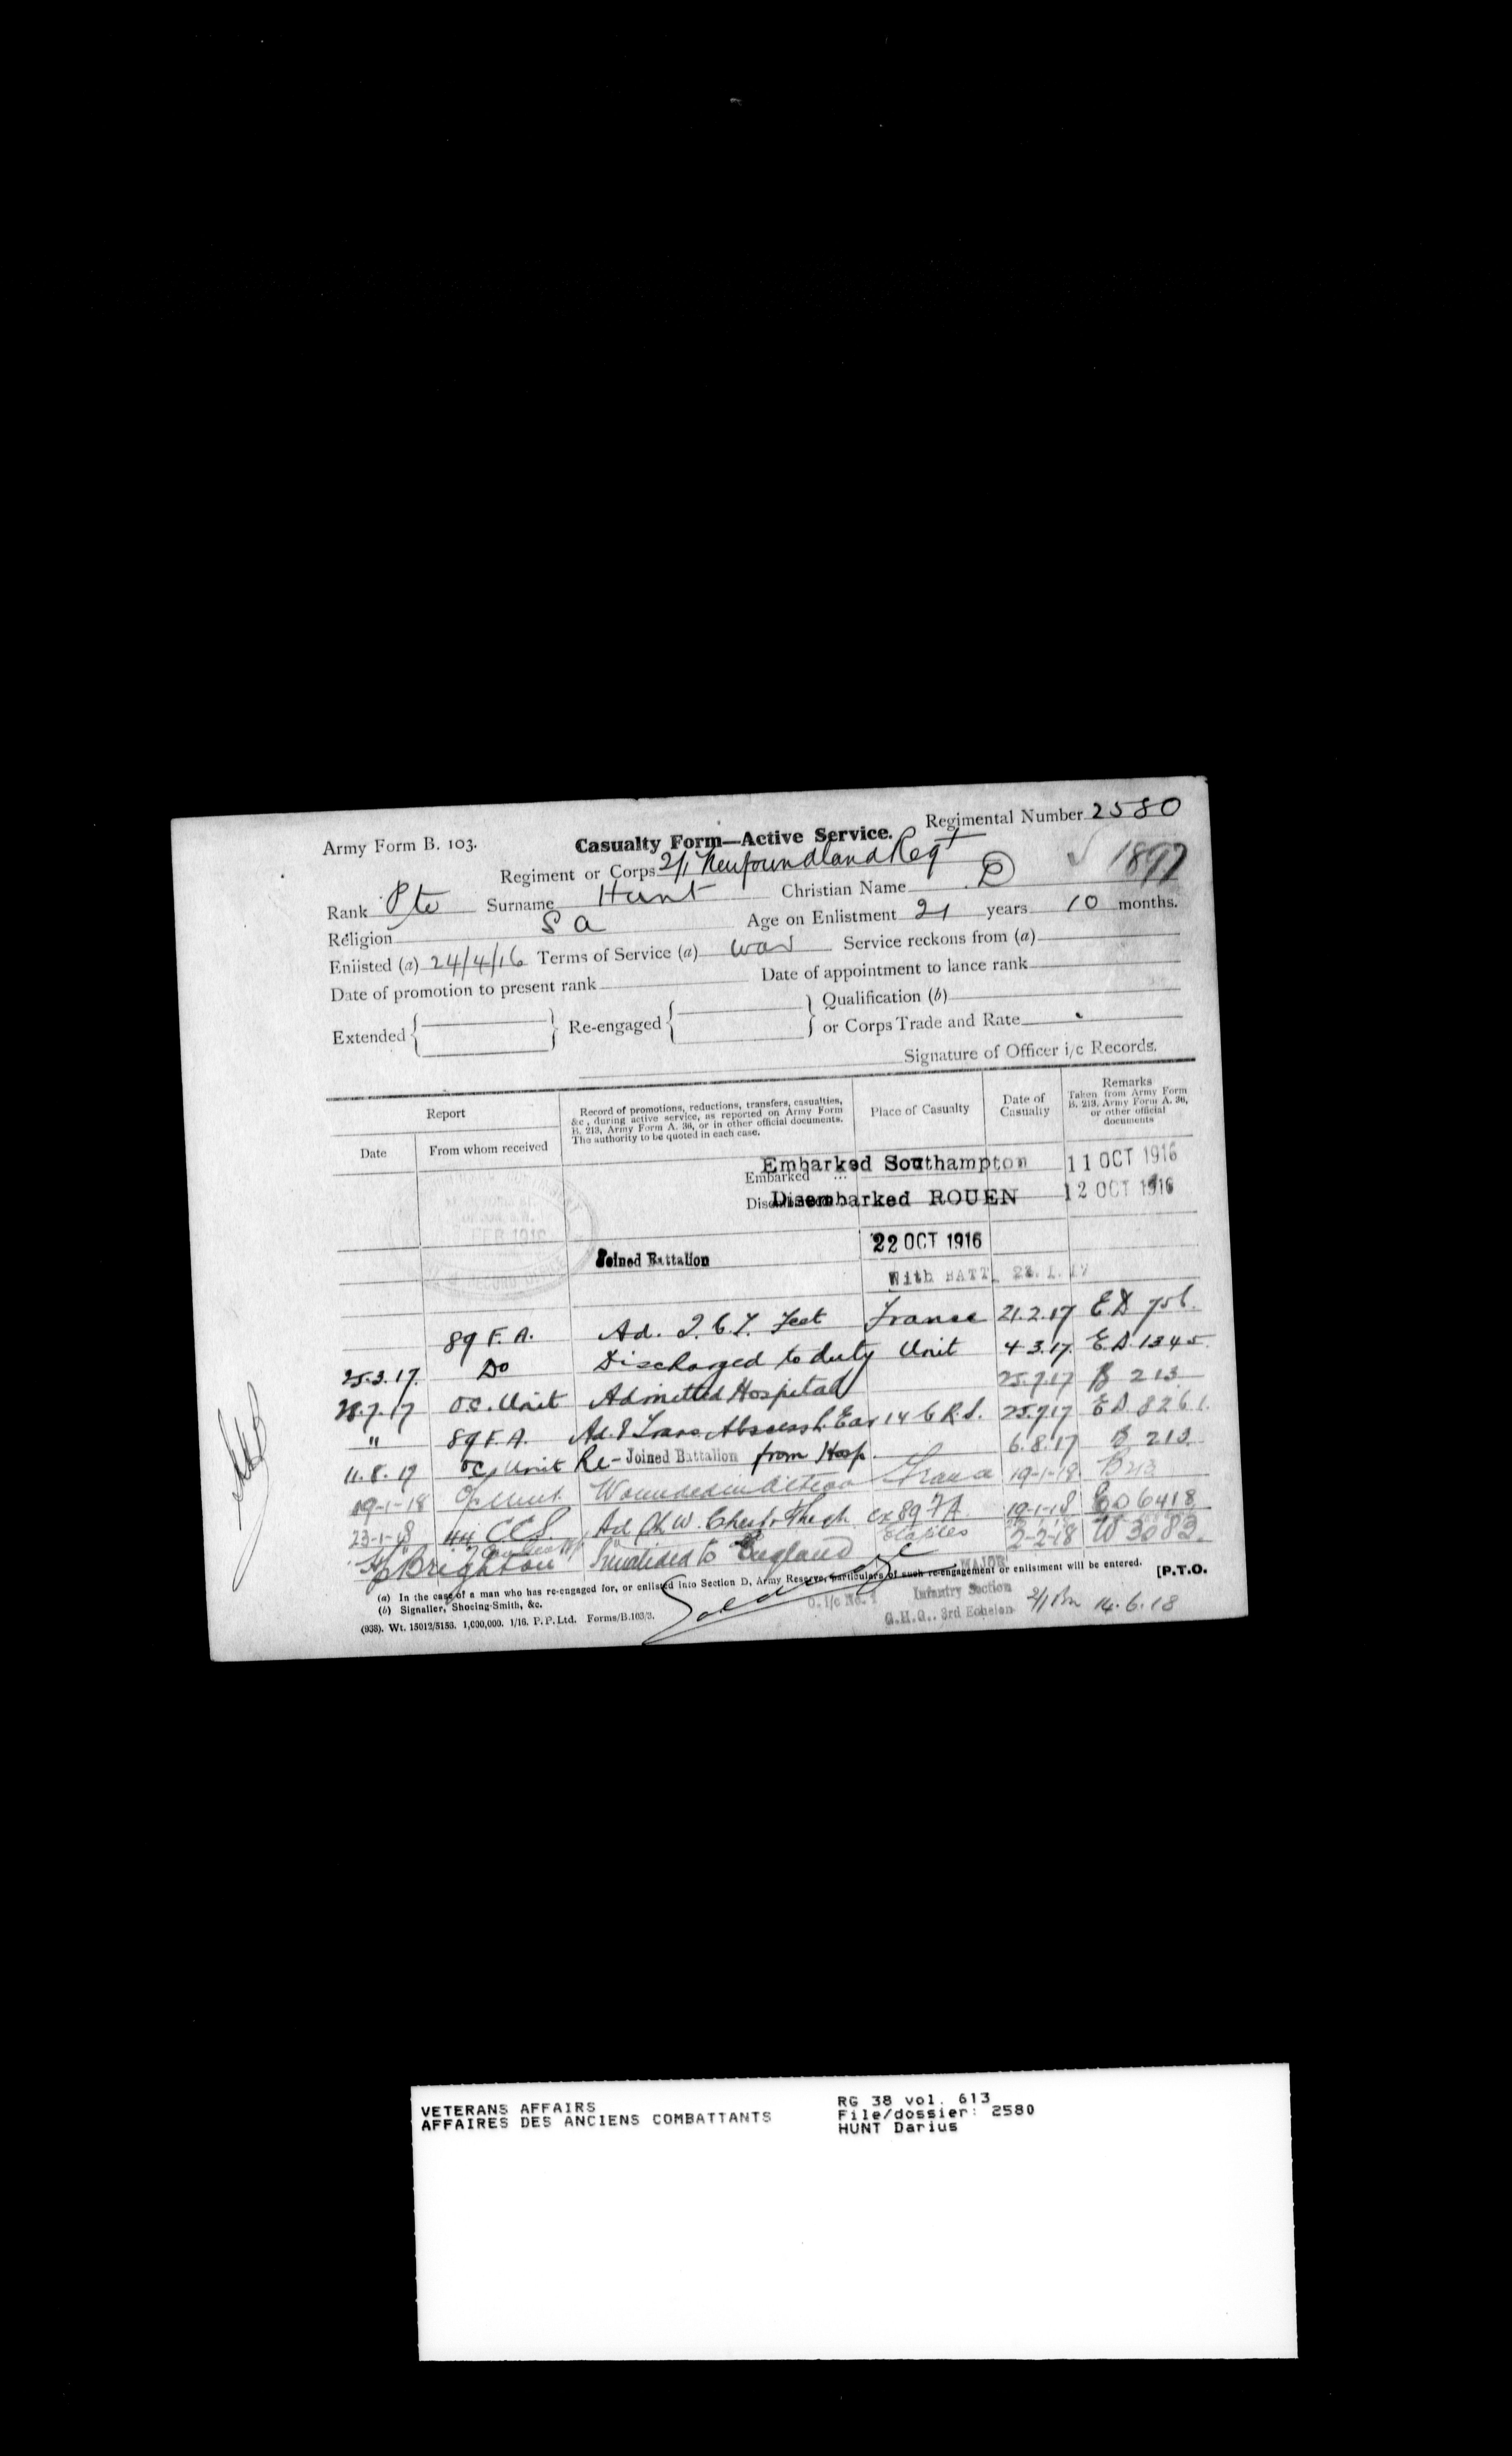 Army Form B. 103.
Casualty Form—Active Service.
Regimental Number 2580
Regiment or Corps 2/1 Newfoundland Regt
1897
Rank Pte Surname Hunt Christian Name D
Religion S a Age on Enlistment 21 years 10 months.
Enlisted (a) 24/4/16 Terms of Service (a) war Service reckons from (a)
Date of promotion to present rank Date of appointment to lance rank
Extended Re-engaged Qualification (b)
or Corps Trade and Rate
Signature of Officer i/c Records.
Report
Date
From whom received
Record of promotions, reductions, transfers, casualties, &c., during active service, as reported on Army Form B. 213, Army Form A. 36, or in other official documents. The authority to be quoted in each case.
Place of Casualty
Date of Casualty
Remarks
Taken from Army Form B. 213, Army Form A. 36, or other official documents
Embarked ...
Embarked Southampton 11 OCT 1916
Disembarked ROUEN 12 OCT 1916
Joined Battalion 22 OCT 1916
With BATT.
89 F.A. Ad. I.C.T. Feet France 21.2.17 E.D 756.
25.3.17. Do Discharged to duty Unit 4 3.17. E.D. 1345
28.7.17 O.C. Unit Admitted Hospital 25.7.17 B 213
" 89 F.A. Ad. & Trans Abscess L. Ear 14 C.R.S. 25.7.17 E.D. 8261.
11.8.17 OC. Unit Re-Joined Battalion from Hosp. 6.8.17 B 213
19-1-18 OC Unit Wounded in Action France 19-1-18 B213
23-1-18 44 CCS. Ad Ch W. Chest & Thigh ex 89 FA 19-1-18 ED 6418
Brighton Invalided to England Etaples 2-2-18 W 3083.
(a) In the case of a man who has re-engaged for, or enlisted into Section D, Army Reserve, particulars of such re-engagement or enlistment will be entered.
(b) Signaller, Shoeing-Smith, &c.
[P.T.O.
(938). Wt. 15012/5153. 1,000,000. 1/16. P.P.Ltd. Forms/B.103/3.
MAJOR
O. i/c No. 1 Infantry Section
G.H.Q., 3rd Echelon 2/1 Bn 14.6.18
VETERANS AFFAIRS
AFFAIRES DES ANCIENS COMBATTANTS
RG 38 vol. 613
File/dossier: 2580
HUNT Darius